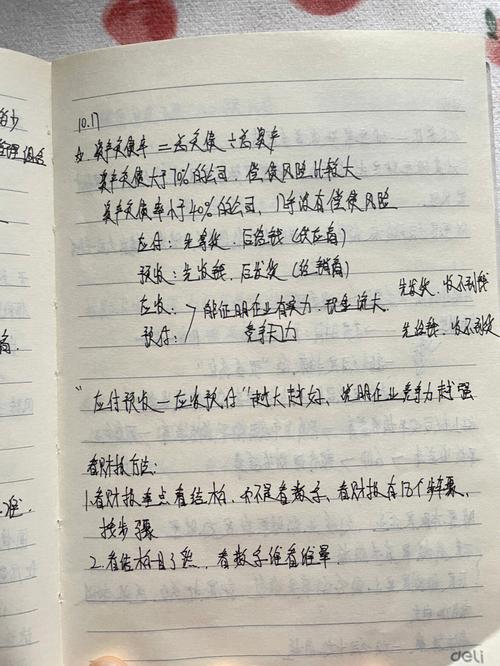 10.17
资产负债率 = 总负债 ÷ 总资产
资产负债大于70%的公司 偿债风险比较大
资产负债率小于40%的公司，几乎没有偿债风险
应付：先拿货，后给钱（供应商）
预收：先收钱，后发货（经销商）
应收： 能证明企业有实力，现金流大， 先发货，收不到钱
预付： 竞争力 先给钱，收不到货
"应付预收 - 应收预付"越大越好，说明企业竞争力越强
看财报方法：
1.看财报重点看结构，而不是看数字，看财报有17个步骤，
找步骤
2.看结构目了然，看数字维看维晕.
deli